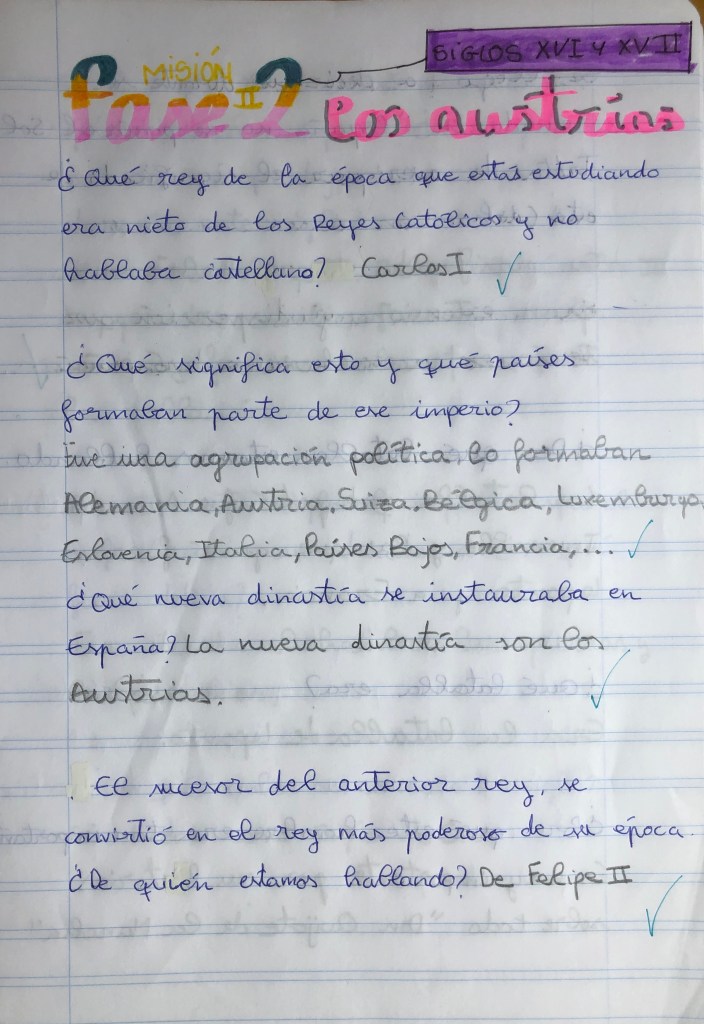 SIGLOS XVI Y XVII
MISIÓN II
fase 2 los austrias
¿Qué rey de la época que estás estudiando
era nieto de los Reyes Católicos y no
hablaba castellano? Carlos I
¿Qué significa esto y qué países
formaban parte de ese imperio?
Fue una agrupación política, lo formaban
Alemania, Austria, Suiza, Bélgica, Luxemburgo,
Eslovenia, Italia, Países Bajos, Francia,...
¿Qué nueva dinastía se instauraba en
España? La nueva dinastía son los
Austrias.
. El sucesor del anterior rey, se
convirtió en el rey más poderoso de su época.
¿De quién estamos hablando? De Felipe II